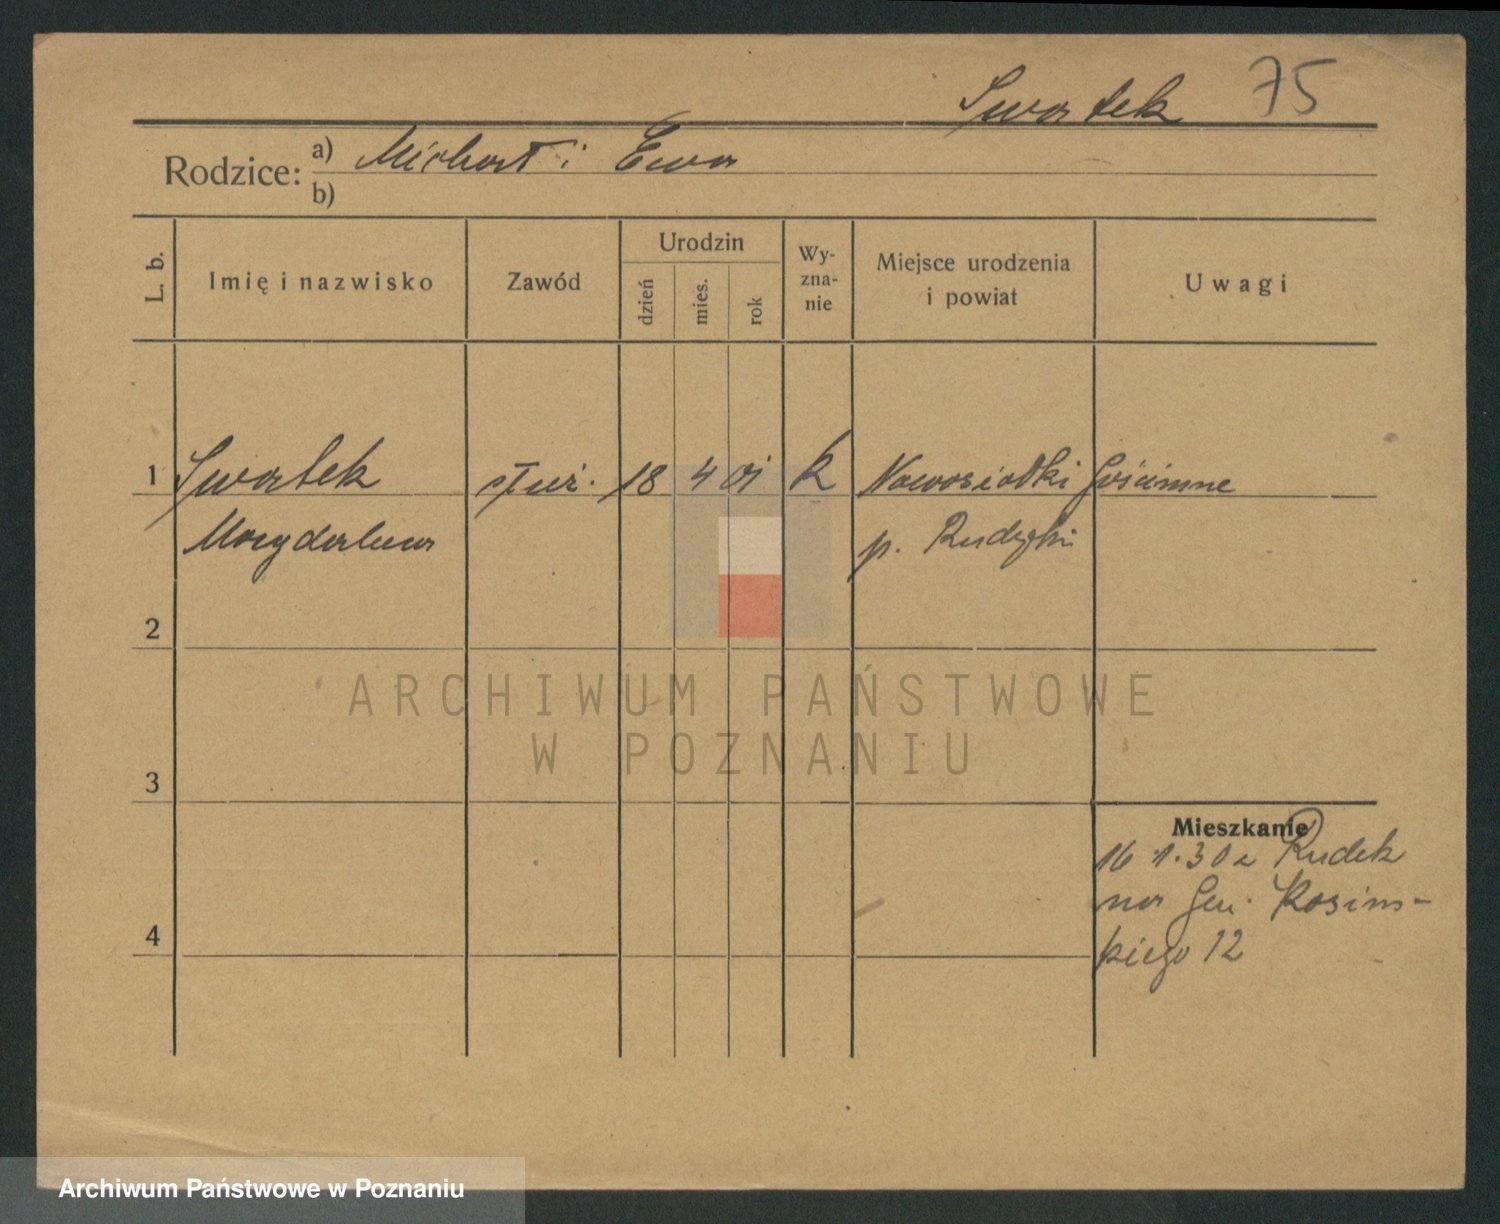 Swatek 75
Rodzice: a) Michał i Ewa
b)
L. b. Imię i nazwisko Zawód Urodzin dzień mies. rok Wy-zna-nie Miejsce urodzenia i powiat Uwagi
1 Swatek służ. 18 4 01 k Nowosiołki Gościnne
Magdalena p. Rudzki
2
ARCHIWUM PAŃSTWOWE
W POZNANIU
3
Mieszkanie
16 1.30 z Rudek
na Gen. Kosiń-
skiego 12
4
Archiwum Państwowe w Poznaniu